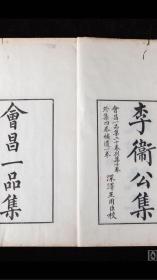 李衛公集
會昌一品集二十卷別集十卷
外集四卷補遺一卷
深澤王用臣校
會昌一品集